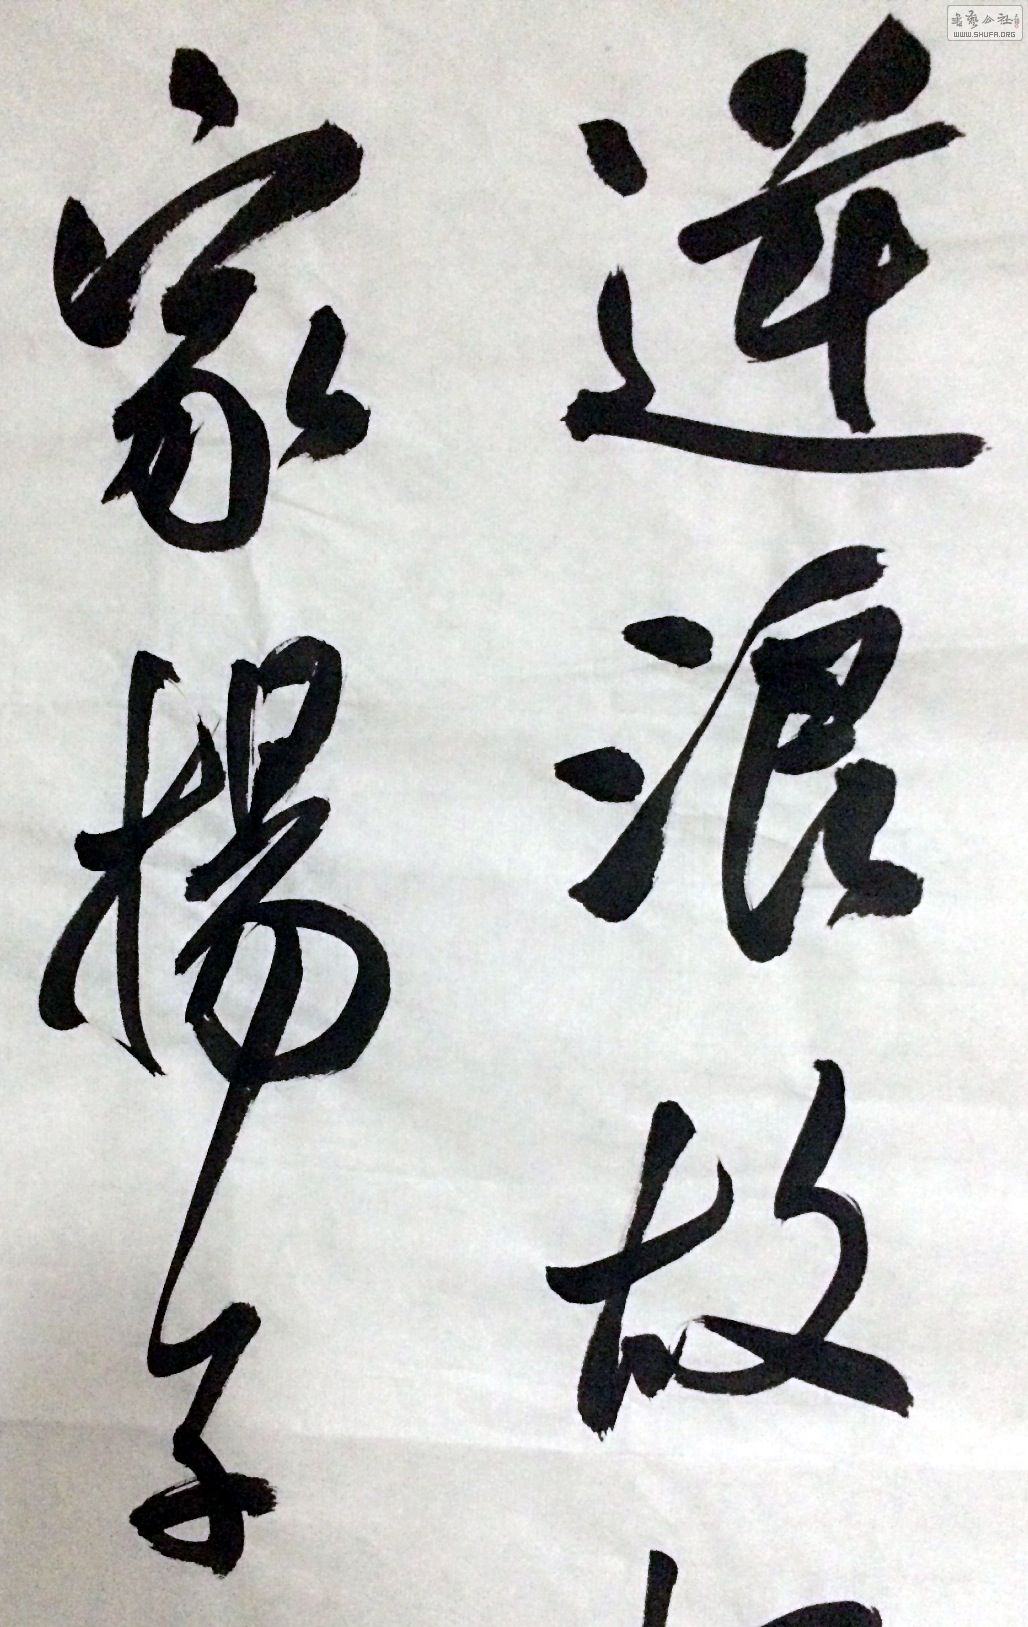 逆浪故
家揚子
書藝公社
WWW.SHUFA.ORG